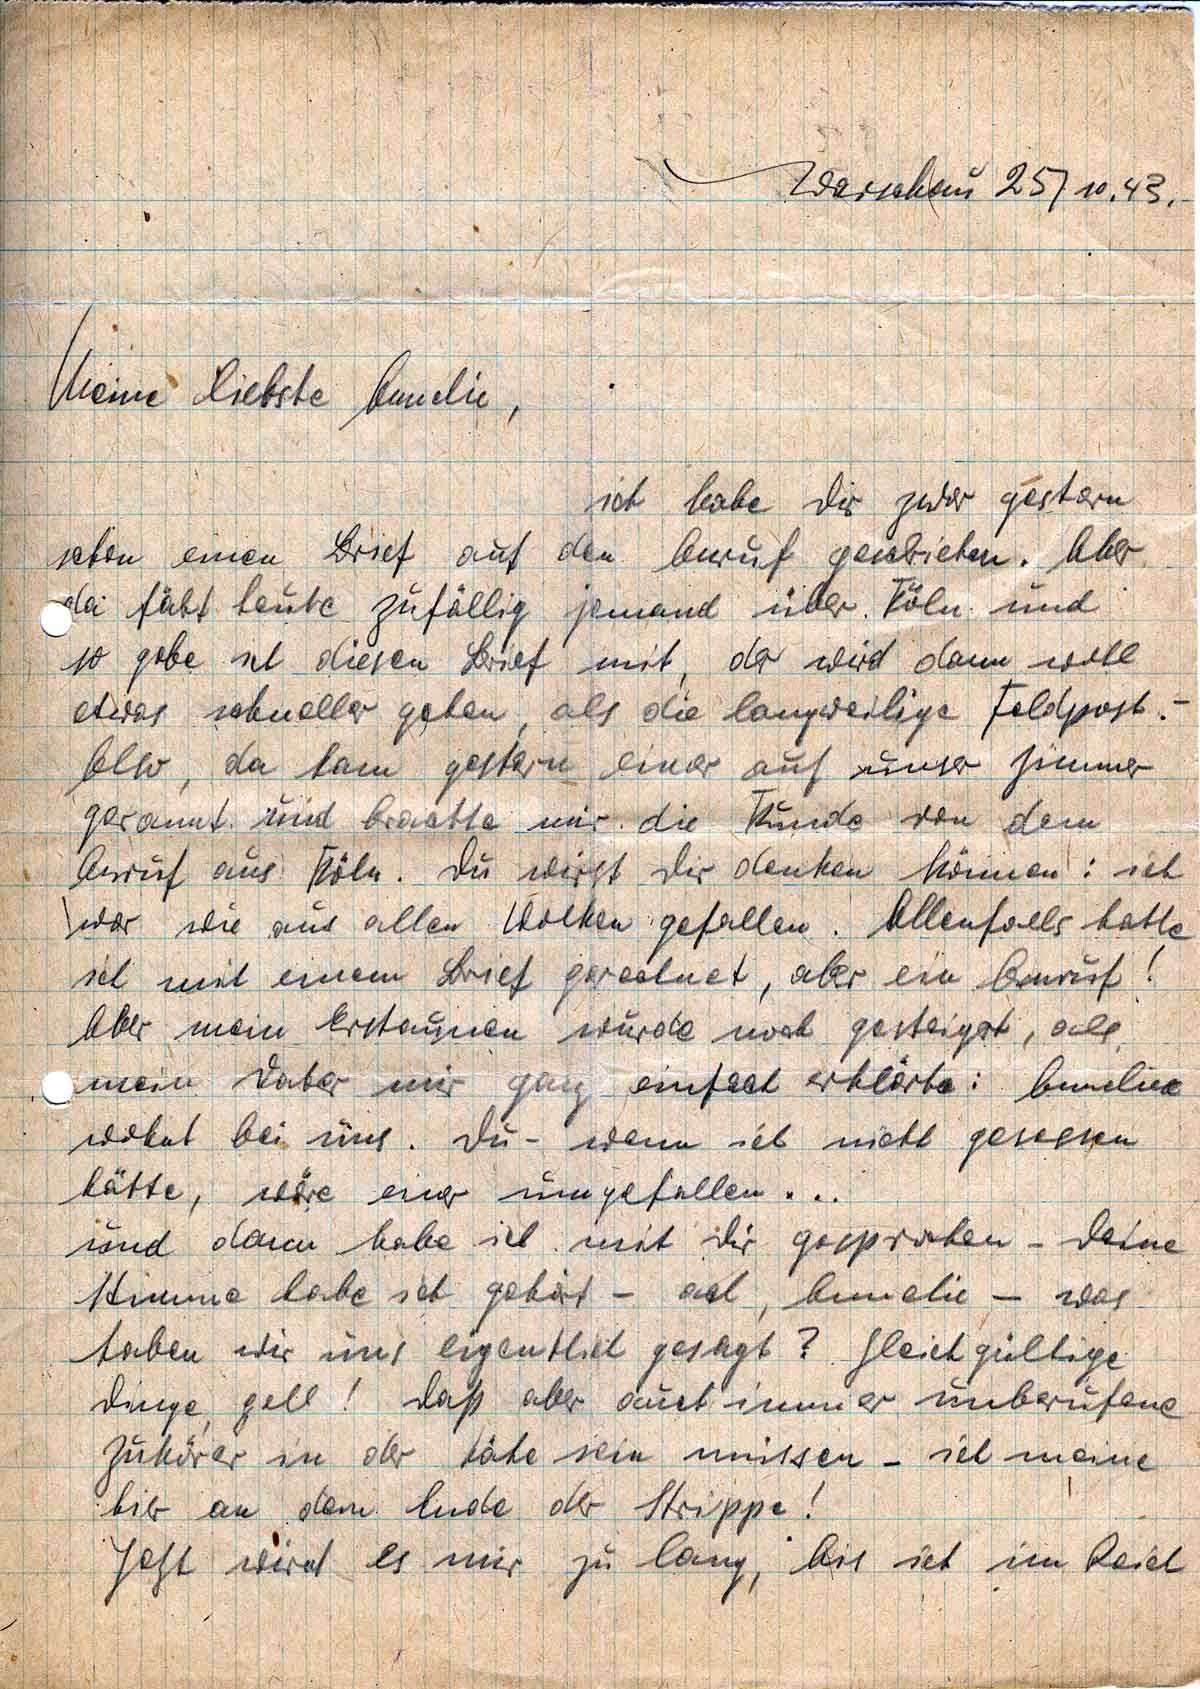 Warschau 25/10.43.
Meine liebste Annelie,
ich habe Dir zwar gestern
schon einen Brief auf den Anruf geschrieben. Aber
da fährt heute zufällig jemand über Köln und
so gebe ich diesen Brief mit, der wird dann wohl
etwas schneller gehen, als die langweilige Feldpost.-
Also, da kam gestern einer auf unser Zimmer
gerannt und brachte mir die Kunde von dem
Anruf aus Köln. Du wirst Dir denken können: ich
war wie aus allen Wolken gefallen. Allenfalls hatte
ich mit einem Brief gerechnet, aber ein Anruf!
Aber mein Erstaunen wurde noch gesteigert, als
mein Vater mir ganz einfach erklärte: Annelie
wohnt bei uns. Du - wenn ich nicht gesessen
hätte, wäre einer umgefallen...
und dann habe ich mit Dir gesprochen - Deine
Stimme habe ich gehört - ach, Annelie - was
haben wir uns eigentlich gesagt? Gleichgültige
Dinge, gell! Daß aber auch immer unberufene
Zuhörer in der Nähe sein müssen - ich meine
hier an dem Ende der Strippe!
Jetzt wird es mir zu lang, bis ich im Reich